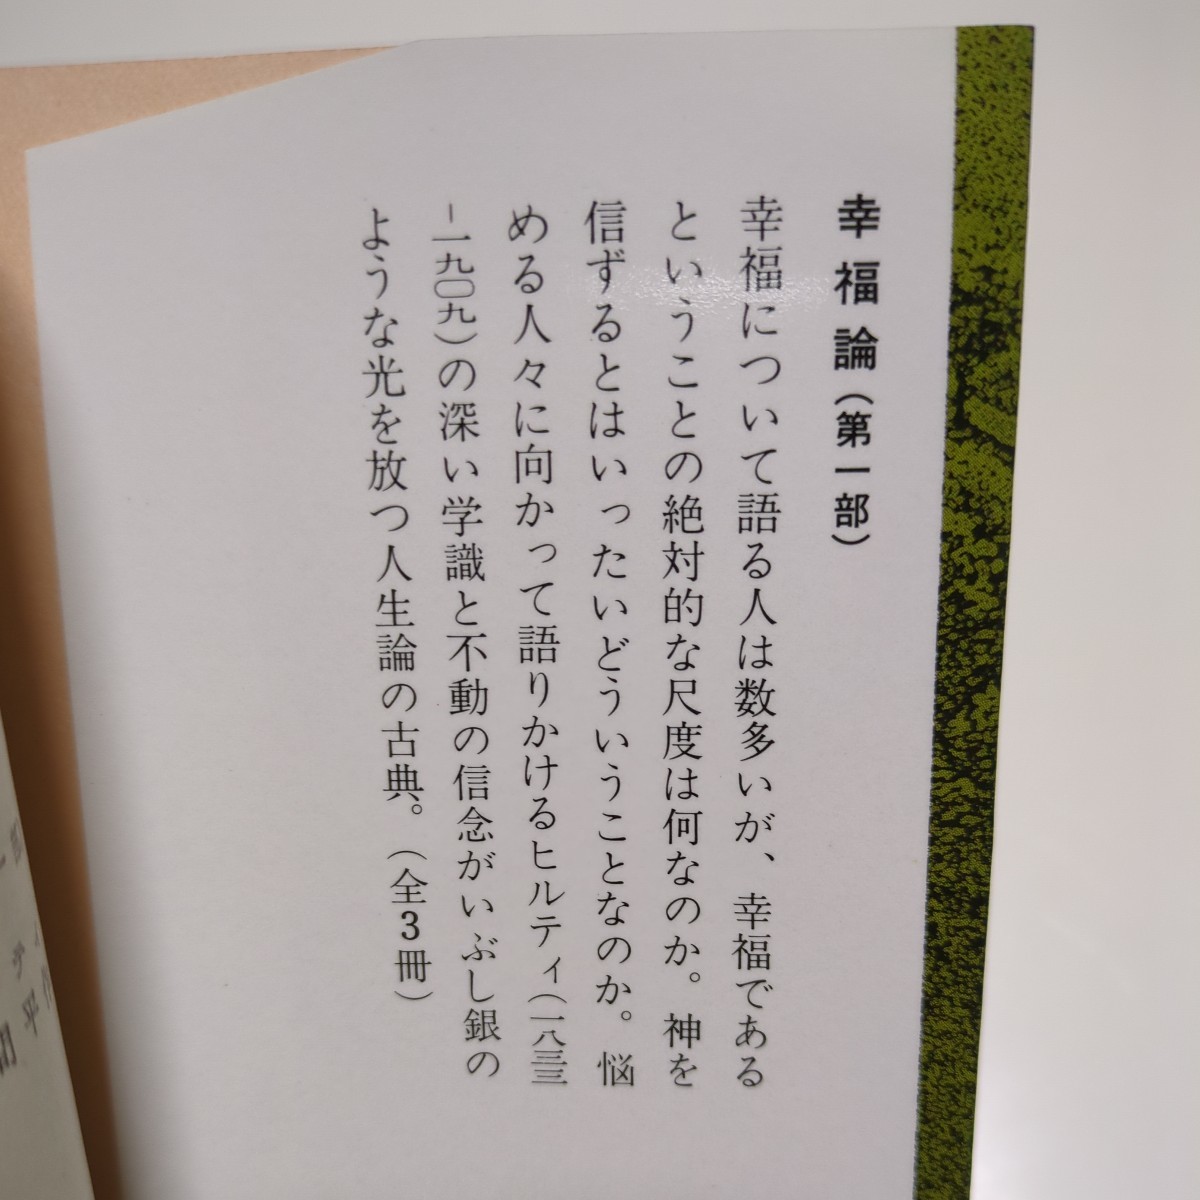 幸福論(第一部)
幸福について語る人は数多いが、幸福である
ということの絶対的な尺度は何なのか。神を
信ずるとはいったいどういうことなのか。悩
める人々に向かって語りかけるヒルティ(一八三三
-一九〇九)の深い学識と不動の信念がいぶし銀の
ような光を放つ人生論の古典。(全3冊)